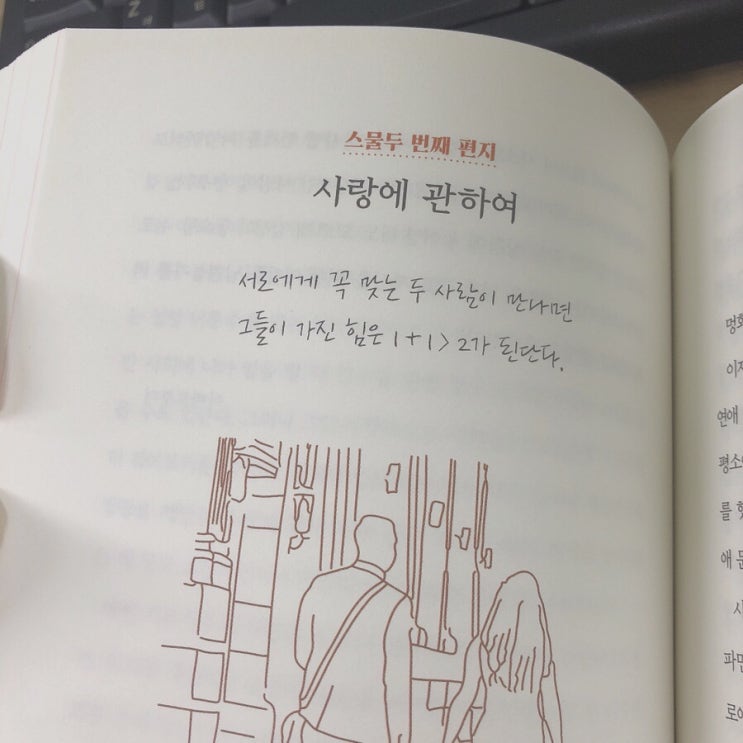 스물두 번째 편지
사랑에 관하여
서로에게 꼭 맞는 두 사람이 만나면
그들이 가진 힘은 1+1>2가 된단다.
연애
를
애